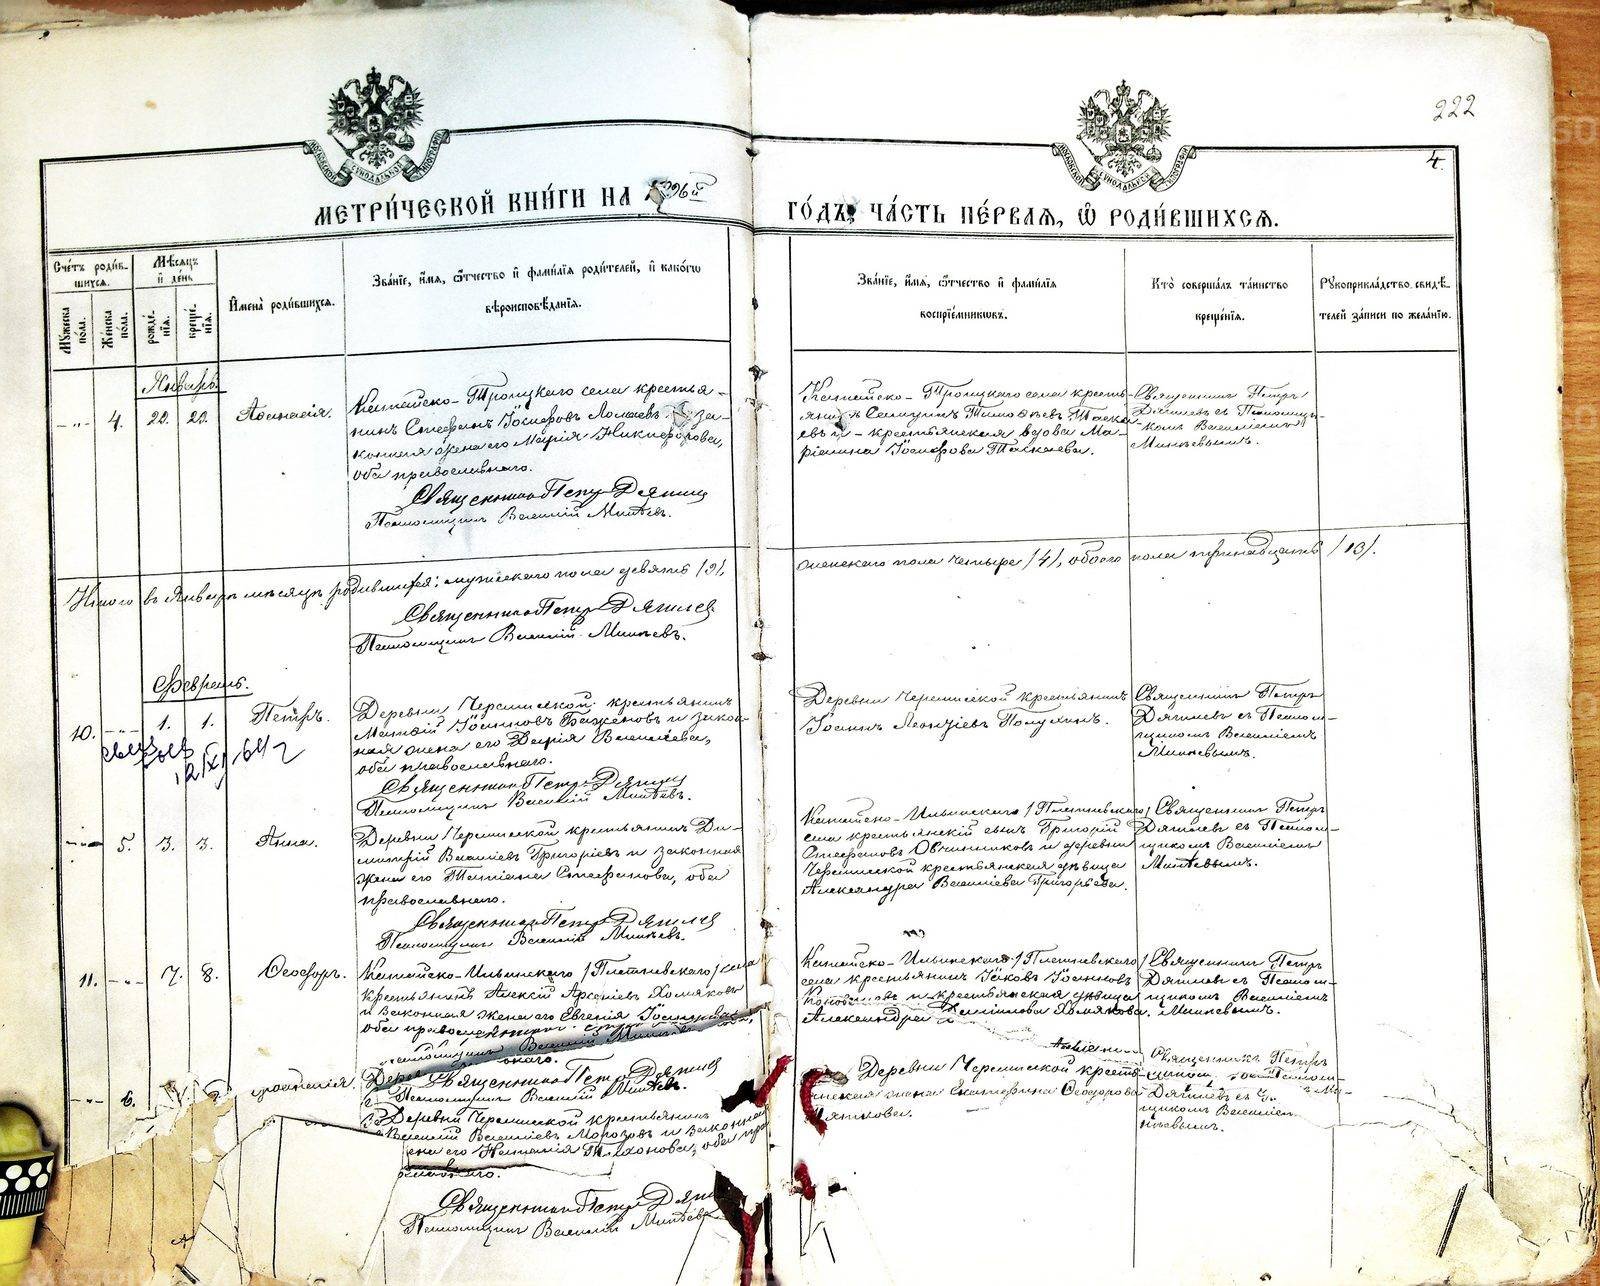 222
4.
МЕТРИ́ЧЕСКОЙ КНИ́ГИ НА 1896й
ГО́ДЪ, ЧА́СТЬ ПЕ́РВАѦ, Ѿ РОДИ́ВШИХСѦ.
Сче́тъ роди́в-
шихся.
Мѣсяцъ
и де́нь
Мꙋжеска по́ла.
Же́нска по́ла.
рожде́нїя.
креще́нїя.
Имена̀ роди́вшихся.
Зва́нїе, и́мя, о́тчество и фами́лїя роди́телей, и како́гѡ
вѣроисповѣ́данїя.
Зва́нїе, и́мя, о́тчество и фами́лїя
воспрїе́мникѡвъ.
Кто̀ соверша́лъ та́инство
креще́нїя.
Рꙋкоприкла́дство свидѣ́-
телей за́писи по жела́нїю.
Январь.
-"- 4. 22. 22. Аѳанасія.
Катайско-Троицкаго села кресть-я-
нинъ Стефанъ Іосифовъ и за-
конная жена его Марія Никифорова,
оба православнаго.
Священникъ Петръ Дягилев
Псаломщикъ Василій Минѣевъ.
Катайско-Троицкаго села кресть-
янинъ Симеонъ Тимоѳеевъ Таска-
евъ и крестьянская вдова Ма-
ріамна Іосифова Таскаева.
Священникъ Петръ
Дягилевъ съ Псаломщи-
комъ Василіемъ
Минѣевымъ.
Итого въ Январѣ мѣсяцѣ родившихся: мужескаго пола девять /9/,
женскаго пола четыре /4/, обоего пола тринадцать /13/.
Священникъ Петръ Дягилев
Псаломщикъ Василій Минѣевъ.
Февраль.
10. -"- 1. 1. Петръ.
12/XI-64 г
Деревни Черемисской крестьянинъ
Матѳій Іоанновъ Баженовъ и закон-
ная жена его Дарія Василіева,
оба православнаго.
Священникъ Петръ Дягилев
Псаломщикъ Василій Минѣевъ.
Деревни Черемисской крестьянинъ
Іоаннъ Леонтіевъ Полухинъ.
Священникъ Петръ
Дягилевъ съ Псалом-
щикомъ Василіемъ
Минѣевымъ.
-"- 5. 3. 3. Анна.
Деревни Черемисской крестьянинъ Ди-
митрій Василіевъ Григоріевъ и законная
жена его Татіана Стефанова, оба
православнаго.
Священникъ Петръ Дягилев
Псаломщикъ Василій Минѣевъ.
Катайско-Ильинскаго /Плетневскаго/
села крестьянскій сынъ Григорій
Стефановъ Овчинниковъ и деревни
Черемисской крестьянская дѣвица
Александра Василіева Григорьева.
Священникъ Петръ
Дягилевъ съ Псалом-
щикомъ Василіемъ
Минѣевымъ.
11. -"- 7. 8. Ѳеодоръ.
Катайско-Ильинскаго /Плетневскаго/ села
крестьянинъ Алексій Арсеніевъ Хомяковъ
и законная жена его Евгенія
оба православнаго.
Псаломщикъ Василій Минѣевъ
Катайско-Ильинскаго /Плетневскаго/
села крестьянинъ Іаковъ Іоанновъ
и крестьянская дѣвица
Александра Хомякова.
Священникъ Петръ
Дягилевъ съ Псалом-
щикомъ Василіемъ
Минѣевымъ.
Священникъ Петръ Дягилев
Псаломщикъ Василій Минѣевъ.
-"- 6.
Деревни Черемисской крестьянинъ
Василій Василіевъ Морозовъ и законная
жена его Тихонова, оба пра-
вославнаго.
Священникъ Петръ Дягилев
Псаломщикъ Василій Минѣевъ
Деревни Черемисской кресть-
янская жена Екатерина Ѳеодорова
Священникъ Петръ
Дягилевъ съ
щикомъ Василіемъ